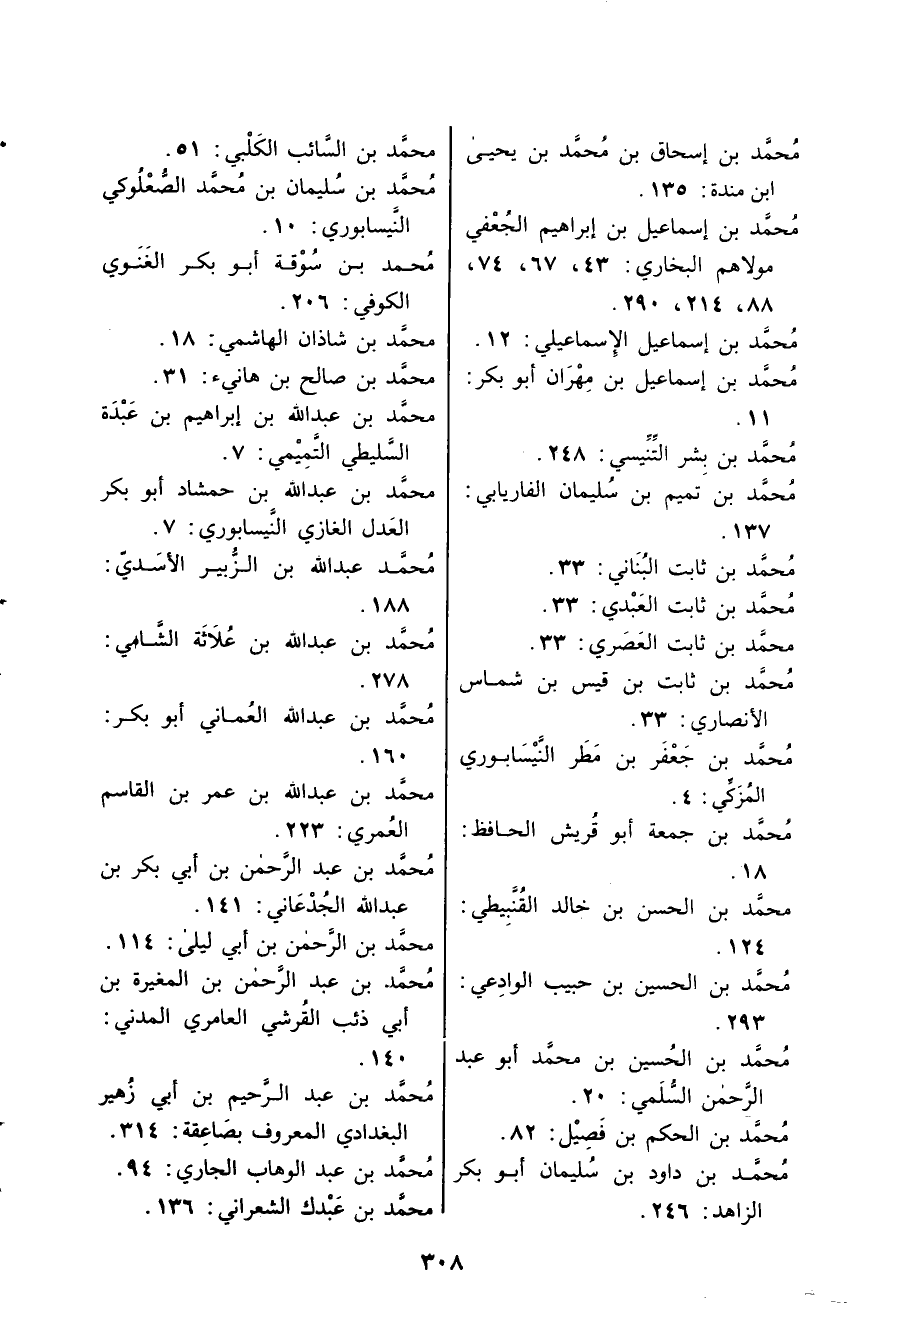 مُحمَّد بن إسحاق بن مُحمَّد بن يحيىٰ
ابن مندة: ١٣٥.
مُحمَّد بن إسماعيل بن إبراهيم الجُعْفي
مولاهم البخاري: ٤٣، ٦٧، ٧٤،
٨٨، ٢١٤، ٢٩٠.
مُحمَّد بن إسماعيل الإِسماعيلي: ١٢.
مُحمَّد بن إسماعيل بن مِهْرَان أبو بكر:
١١.
مُحمَّد بن بِشر التِّنِّيسي: ٢٤٨.
مُحمَّد بن تميم بن سُليمان الفاريابي:
١٣٧.
مُحمَّد بن ثابت البُنَاني: ٣٣.
مُحمَّد بن ثابت العَبْدي: ٣٣.
محمَّد بن ثابت العَصَري: ٣٣.
مُحمَّد بن ثابت بن قيس بن شماس
الأنصاري: ٣٣.
مُحمَّد بن جَعْفَر بن مَطَر النَّيْسَابوري
المُزَكِّي: ٤.
مُحمَّد بن جمعة أبو قُريش الحافظ:
١٨.
محمَّد بن الحسن بن خالد القُنَّبيطي:
١٢٤.
مُحمَّد بن الحسين بن حبيب الوادِعي:
٢٩٣.
مُحمَّد بن الحُسين بن محمَّد أبو عبد
الرَّحمٰن السُّلَمي: ٢٠.
مُحمَّد بن الحكم بن فَصِيْل: ٨٢.
مُحمَّد بن داود بن سُليمان أبو بكر
الزاهد: ٢٤٦.
محمَّد بن السَّائب الكَلْبي: ٥١.
مُحمَّد بن سُليمان بن مُحمَّد الصُّعْلُوكي
النَّيسابوري: ١٠.
مُحمد بن سُوْقة أبو بكر الغَنَوي
الكوفي: ٢٠٦.
محمَّد بن شاذان الهاشمي: ١٨.
محمَّد بن صالح بن هانيء: ٣١.
محمَّد بن عبدالله بن إبراهيم بن عَبْدَة
السَّليطي التَّمِيْمي: ٧.
محمَّد بن عبدالله بن حمشاد أبو بكر
العَدل الغازي النَّيسابوري: ٧.
مُحمَّد عبدالله بن الزُّبير الأسَديّ:
١٨٨.
مُحمَّد بن عبدالله بن عُلَاثَة الشَّامي:
٢٧٨.
مُحمَّد بن عبدالله العُماني أبو بكر:
١٦٠.
محمَّد بن عبدالله بن عمر بن القاسم
العُمري: ٢٢٣.
مُحمَّد بن عبد الرَّحمٰن بن أبي بكر بن
عبدالله الجُدْعَاني: ١٤١.
محمَّد بن الرَّحمٰن بن أبي ليلىٰ: ١١٤.
مُحمَّد. بن عبد الرَّحمٰن بن المغيرة بن
أبي ذئب القُرشي العامري المدني:
١٤٠.
مُحمَّد بن عبد الرَّحيم بن أبي زُهير
البغدادي المعروف بصَاعِقة: ٣١٤.
مُحمَّد بن عبد الوهاب الجاري: ٩٤.
محمَّد بن عَبْدك الشعراني: ١٣٦.
٣٠٨